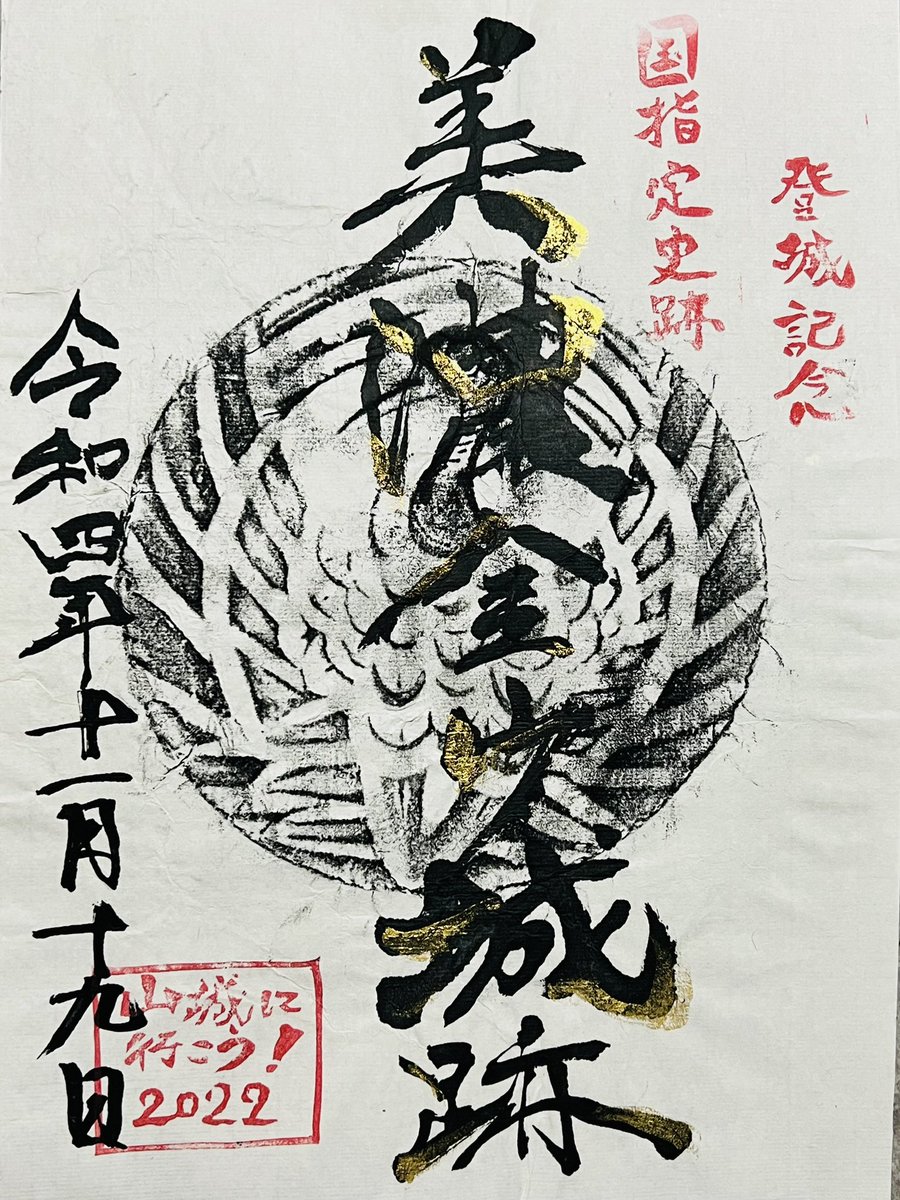 登城記念
国指定史跡
美濃金山城跡
令和四年十一月十九日
山城に
行こう!
2022